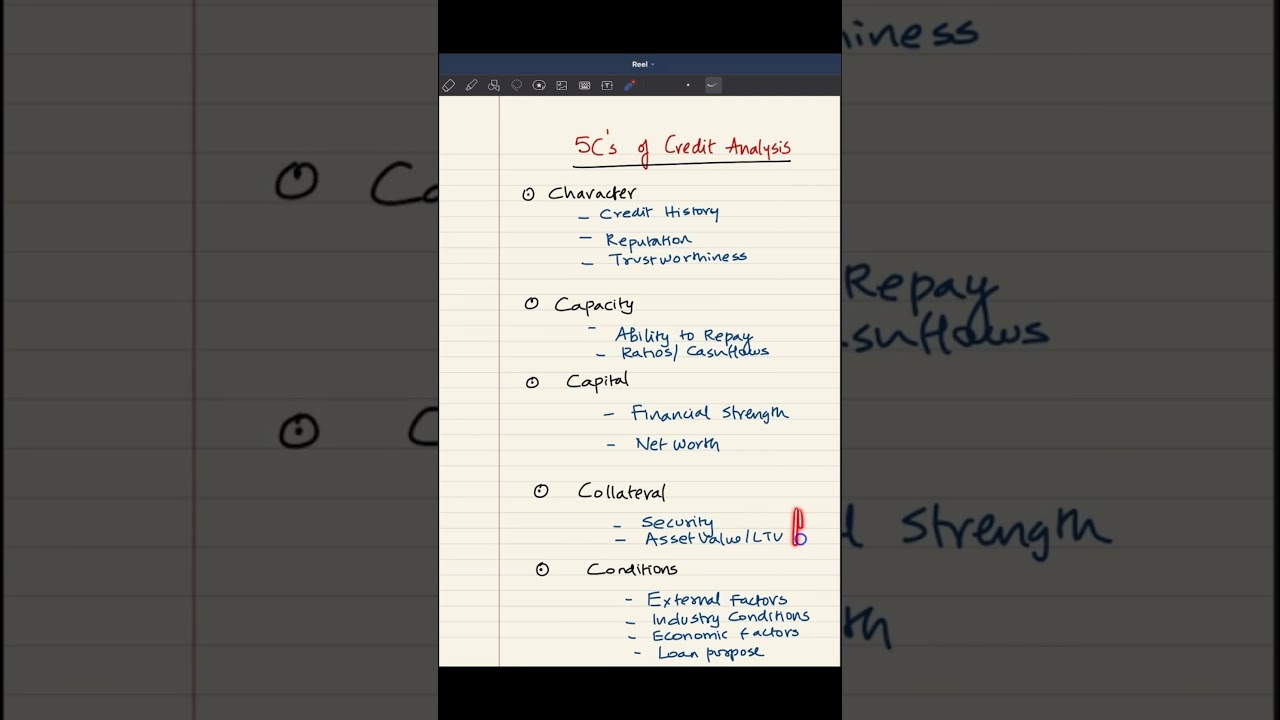 Reel
5C's of Credit Analysis
Character
- Credit History
- Reputation
- Trustworthiness
Capacity
- Ability to Repay
- Ratios/ Cashflows
Capital
- Financial Strength
- Net Worth
Collateral
- Security
- Asset Value/LTV
Conditions
- External Factors
- Industry Conditions
- Economic factors
- Loan purpose